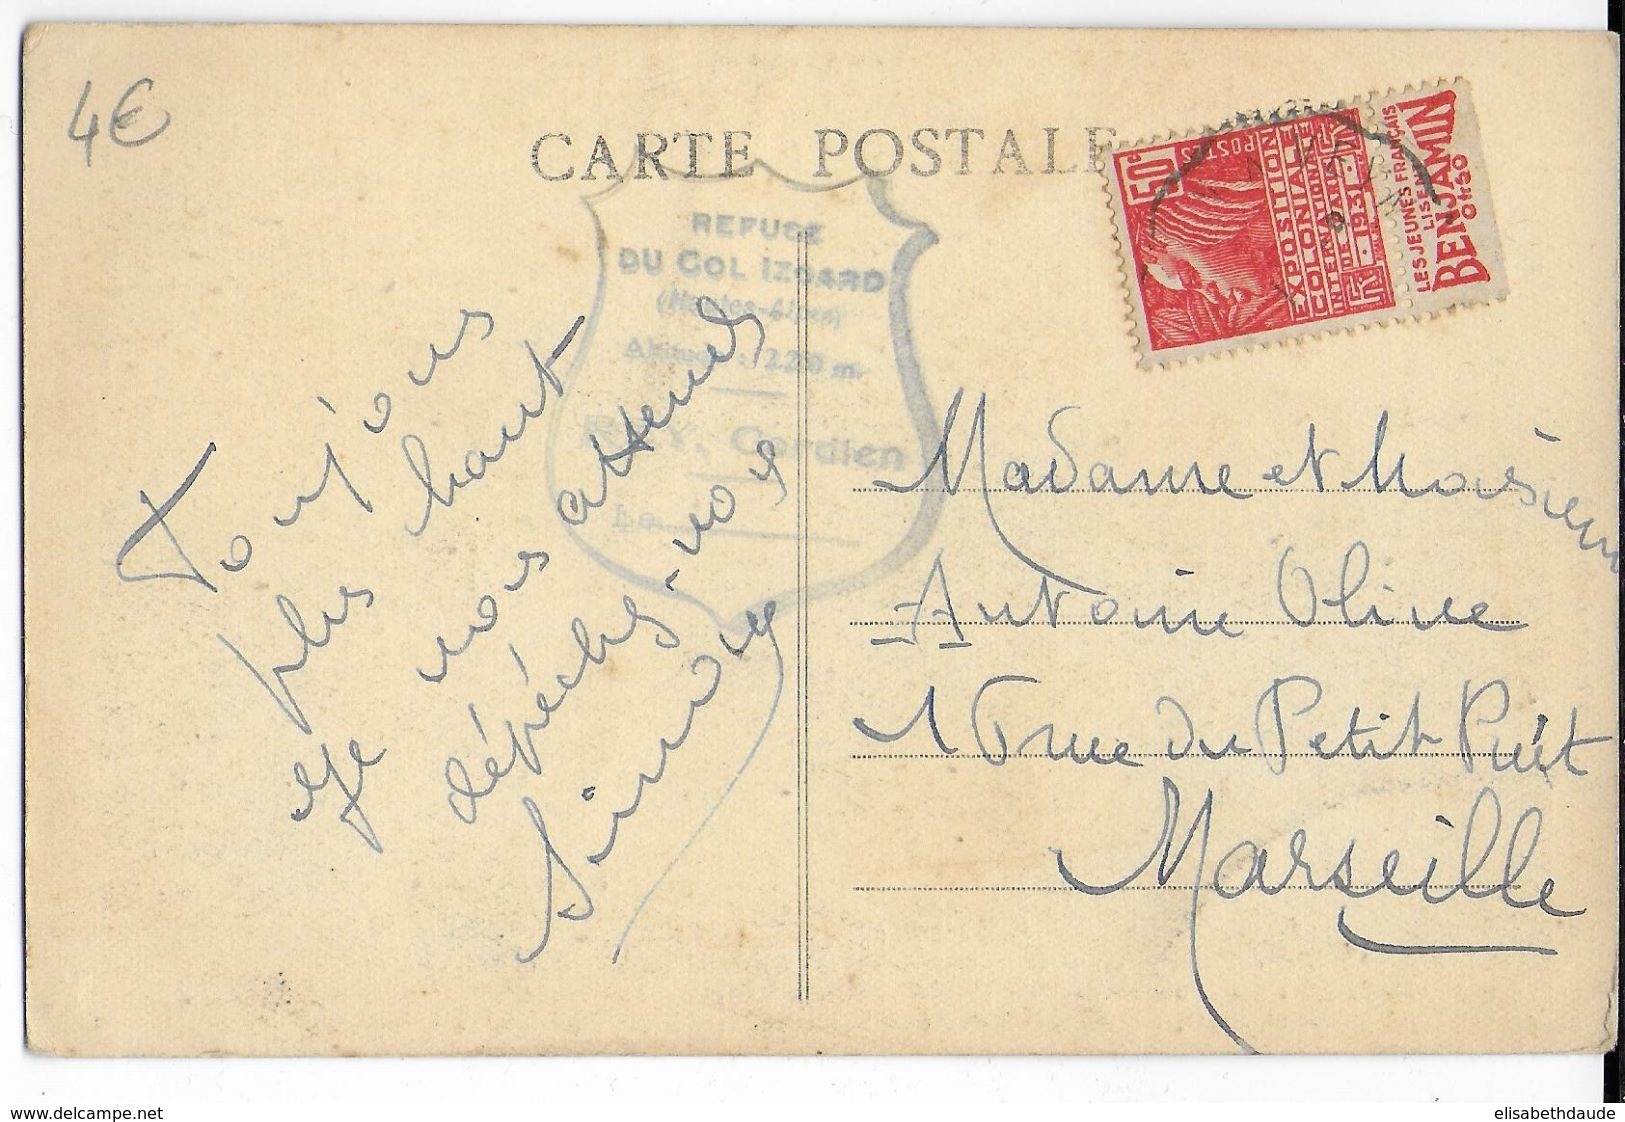 4€
CARTE POSTALE
REFUGE
DU COL IZOARD
(Hautes-Alpes)
Altitude : 2280 m.
Gardien
Le
50c
POSTES
EXPOSITION
COLONIALE
INTERNATIONALE
DE PARIS
1931
LES JEUNES FRANÇAIS
LISENT
BENJAMIN
0f.60
Toujours
plus haut
Je vous attends
dépêchez-vous
Madame et Monsieur
Antoine Olive
1 rue du Petit Puit
Marseille
www.delcampe.net
elisabethdaude